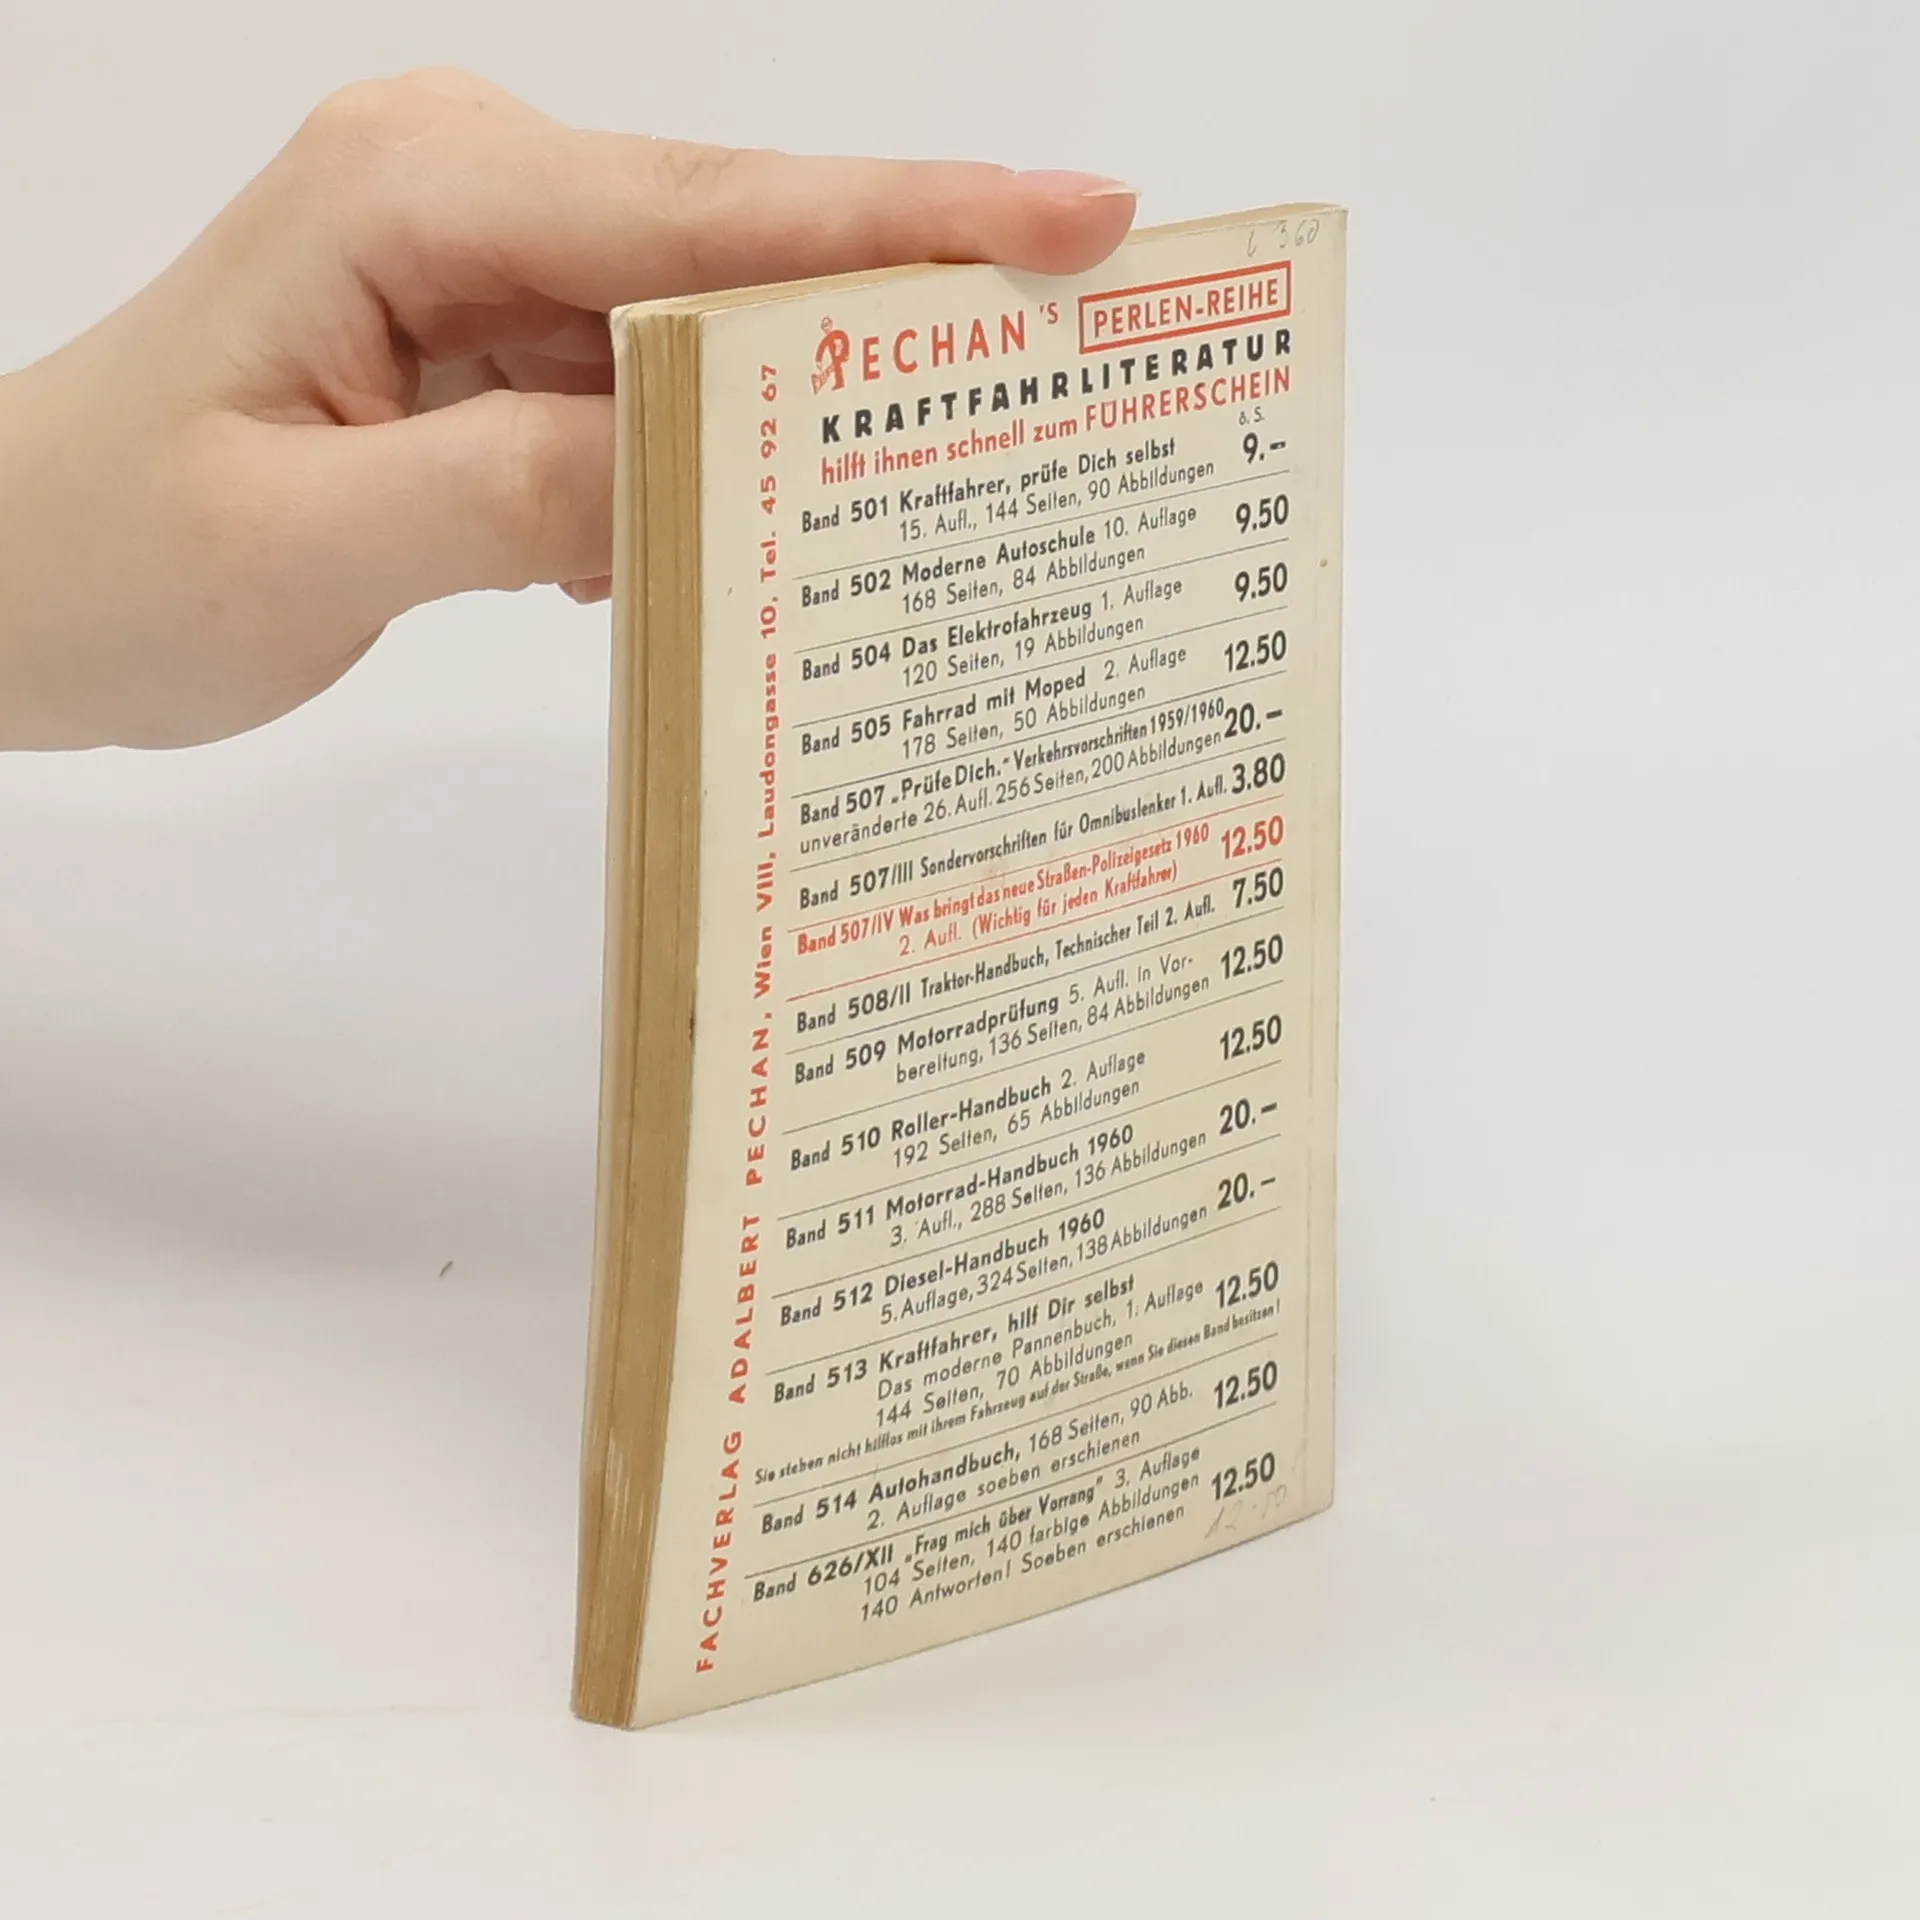 L 360
PECHAN'S PERLEN-REIHE
KRAFTFAHRLITERATUR
hilft ihnen schnell zum FÜHRERSCHEIN
ö. S.
Band 501 Kraftfahrer, prüfe Dich selbst 9.–
15. Aufl., 144 Seiten, 90 Abbildungen
Band 502 Moderne Autoschule 10. Auflage 9.50
168 Seiten, 84 Abbildungen
Band 504 Das Elektrofahrzeug 1. Auflage 9.50
120 Seiten, 19 Abbildungen
Band 505 Fahrrad mit Moped 2. Auflage 12.50
178 Seiten, 50 Abbildungen
Band 507 „Prüfe Dich.“ Verkehrsvorschriften 1959/1960 20.–
unveränderte 26. Aufl. 256 Seiten, 200 Abbildungen
Band 507/III Sondervorschriften für Omnibuslenker 1. Aufl. 3.80
Band 507/IV Was bringt das neue Straßen-Polizeigesetz 1960 12.50
2. Aufl. (Wichtig für jeden Kraftfahrer)
Band 508/II Traktor-Handbuch, Technischer Teil 2. Aufl. 7.50
Band 509 Motorradprüfung 5. Aufl. in Vor- 12.50
bereitung, 136 Seiten, 84 Abbildungen
Band 510 Roller-Handbuch 2. Auflage 12.50
192 Seiten, 65 Abbildungen
Band 511 Motorrad-Handbuch 1960 20.–
3. Aufl., 288 Seiten, 136 Abbildungen
Band 512 Diesel-Handbuch 1960 20.–
5. Auflage, 324 Seiten, 138 Abbildungen
Band 513 Kraftfahrer, hilf Dir selbst 12.50
Das moderne Pannenbuch, 1. Auflage
144 Seiten, 70 Abbildungen
Sie stehen nicht hilflos mit ihrem Fahrzeug auf der Straße, wenn Sie diesen Band besitzen!
Band 514 Autohandbuch, 168 Seiten, 90 Abb. 12.50
2. Auflage soeben erschienen
Band 626/XII „Frag mich über Vorrang“ 3. Auflage 12.50
104 Seiten, 140 farbige Abbildungen
140 Antworten! Soeben erschienen
12.50
FACHVERLAG ADALBERT PECHAN, Wien VIII, Laudongasse 10, Tel. 45 92 67